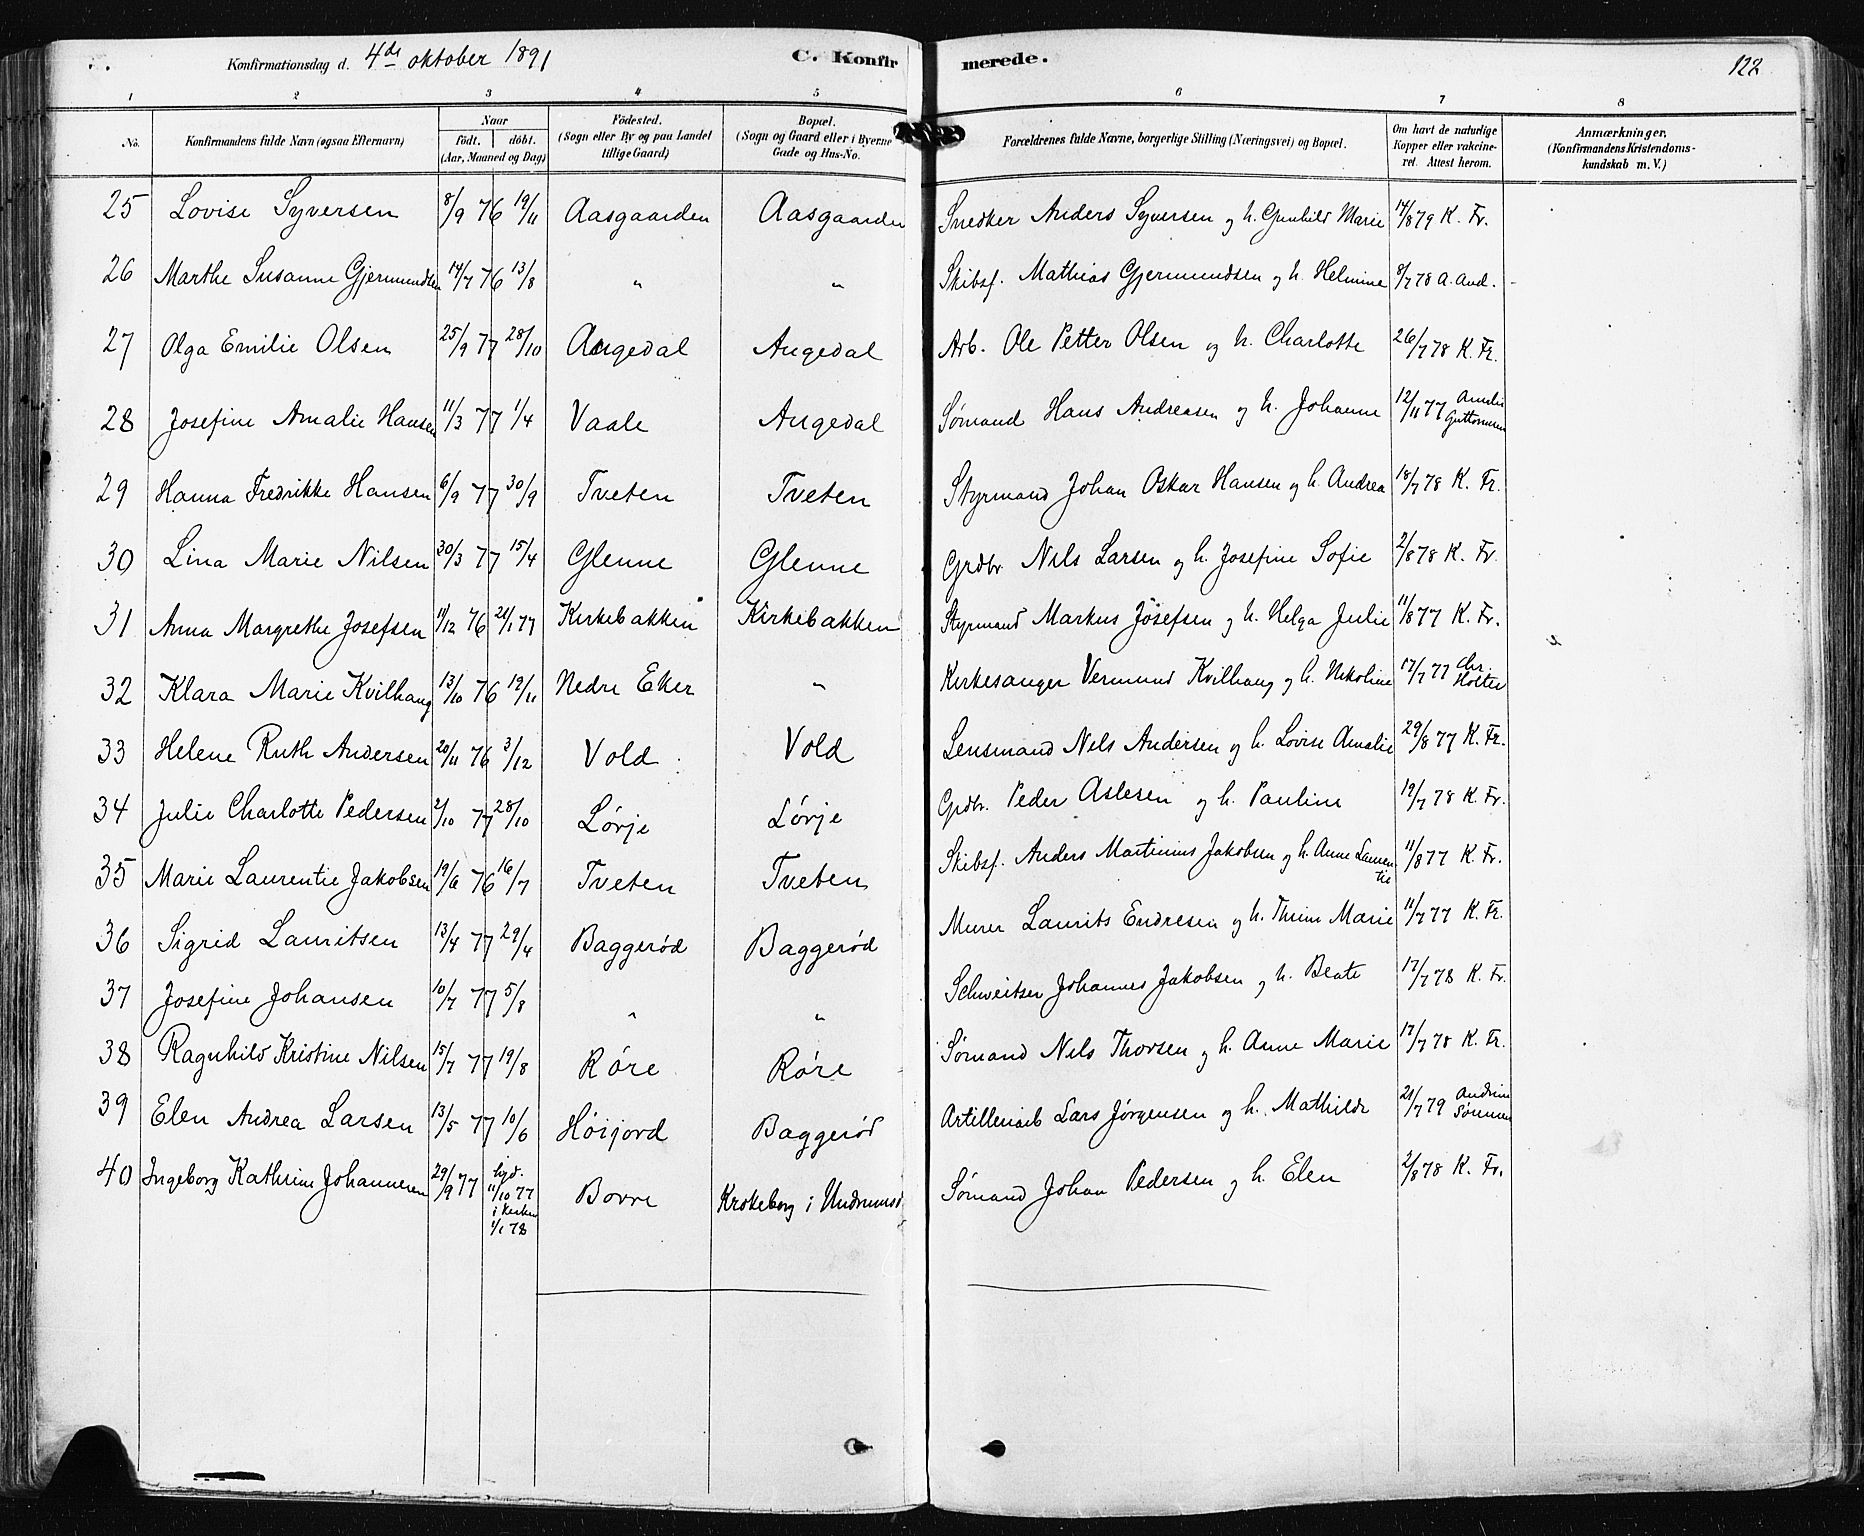 Konfirmationsdag d. 4de oktober 1891 C. Konfirmerede. 122
1 2 3 4 5 6 7 8
No. Konfirmandens fulde Navn (ogsaa Efternavn) Naar født. døbt. (Aar, Maaned og Dag) Fødested. (Sogn eller By og paa Landet tillige Gaard) Bopæl. (Sogn og Gaard eller i Byerne Gade og Hus-No. Forældrenes fulde Navne, borgerlige Stilling (Næringsvei) og Bopæl. Om havt de naturlige Kopper eller vakcineret. Attest herom. Anmærkninger. (Konfirmandens Kristendomskundskab m. V.)
25 Lovise Syversen 8/9 76 19/11 Aasgaarden Aasgaarden Snedker Anders Syversen og h. Gunhild Marie 14/8 79 K. Fr.
26 Marthe Susanne Gjermundsen 14/7 76 13/8 " " Skibsf. Mathias Gjermundsen og h. Helmine 8/7 78 A. And.
27 Olga Emilie Olsen 25/9 77 28/10 Augedal Augedal Arb. Ole Petter Olsen og h. Charlotte 26/7 78 K. Fr.
28 Josefine Amalie Hansen 11/3 77 1/4 Vaale Augedal Sømand Hans Andreasen og h. Johanne 12/11 77 Amalie Guttormsen
29 Hanna Fredrikke Hansen 6/9 77 30/9 Tveten Tveten Styrmand Johan Oskar Hansen og h. Andrea 18/7 78 K. Fr.
30 Lina Marie Nilsen 30/3 77 15/4 Glenne Glenne Grdbr. Nils Larsen og h. Josefine Sofie 2/8 78 K. Fr.
31 Anna Margrethe Josefsen 11/12 76 21/1 77 Kirkebakken Kirkebakken Styrmand Markus Josefsen og h. Helga Julie 11/8 77 K. Fr.
32 Klara Marie Kvilhaug 13/10 76 19/11 Nedre Eker " Kirkesanger Vermund Kvilhaug og h. Nikoline 17/7 77 Chr. Holter
33 Helene Ruth Andersen 20/11 76 3/12 Vold Vold Lensmand Nils Andersen og h. Lovise Amalie 29/8 77 K. Fr.
34 Julie Charlotte Pedersen 2/10 77 28/10 Lørje Lørje Grdbr. Peder Aslesen og h. Pauline 19/7 78 K. Fr.
35 Marie Laurentie Jakobsen 19/6 76 16/7 Tveten Tveten Skibsf. Anders Martinius Jakobsen og h. Anne Laurentie 11/8 77 K. Fr.
36 Sigrid Lauritsen 13/4 77 29/4 Baggerød Baggerød Murer Laurits Endresen og h. Thrine Marie 11/7 77 K. Fr.
37 Josefine Johansen 10/7 77 5/8 " " Schweitser Johannes Jakobsen og h. Beate 17/7 78 K. Fr.
38 Ragnhild Kristine Nilsen 15/7 77 19/8 Røre Røre Sømand Nils Thorsen og h. Anne Marie 17/7 78 K. Fr.
39 Elen Andrea Larsen 13/5 77 10/6 Høijord Baggerød Artilleriarb Lars Jørgensen og h. Mathilde 21/7 79 Andrine Sørensen
40 Ingeborg Kathrine Johannesen 29/9 77 hjd. 11/10 77 i Kirken 1/1 78 Borre Krokeborg i Undrumsd. Sømand Johan Pedersen og h. Elen 2/8 78 K. Fr.